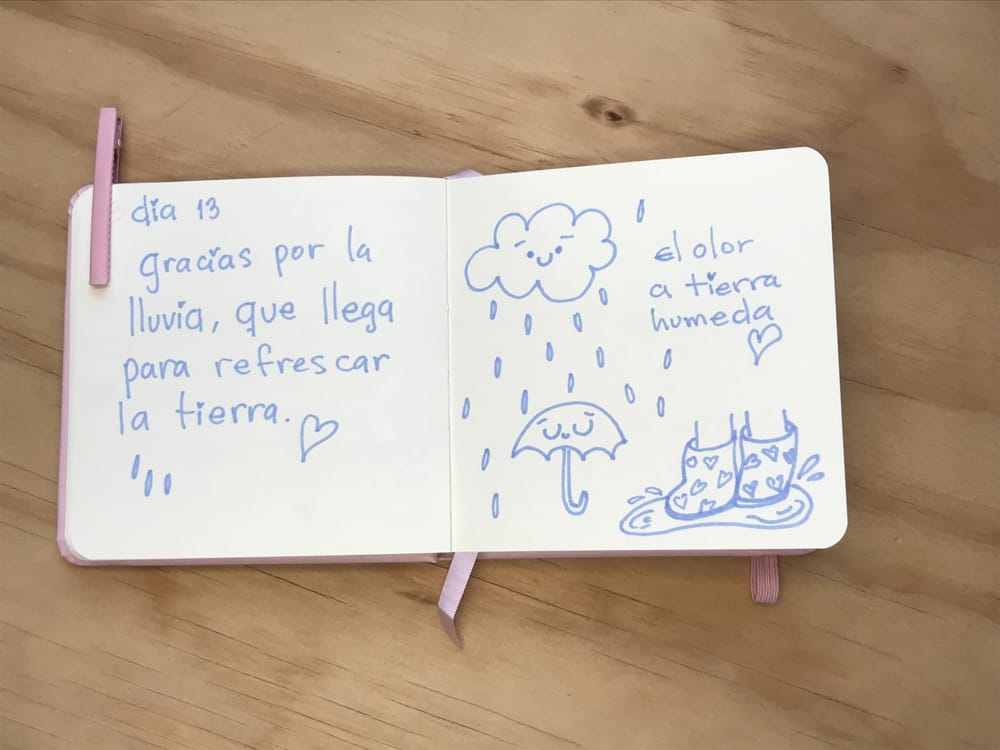 día 13
gracias por la
lluvia, que llega
para refrescar
la tierra.
el olor
a tierra
humeda